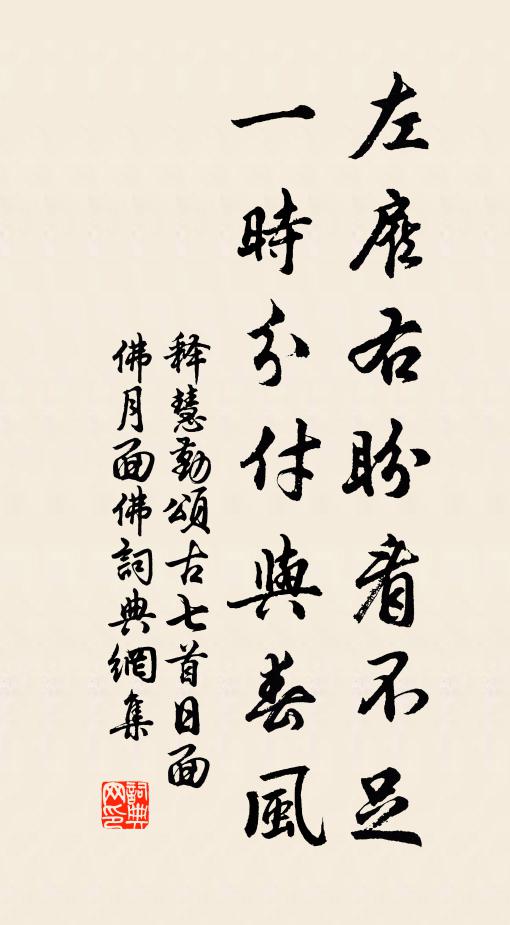 左顧右盼看不足
一時分付與春風
释慧勤頌古七首日面
佛月面佛詞典網集
詞典网印